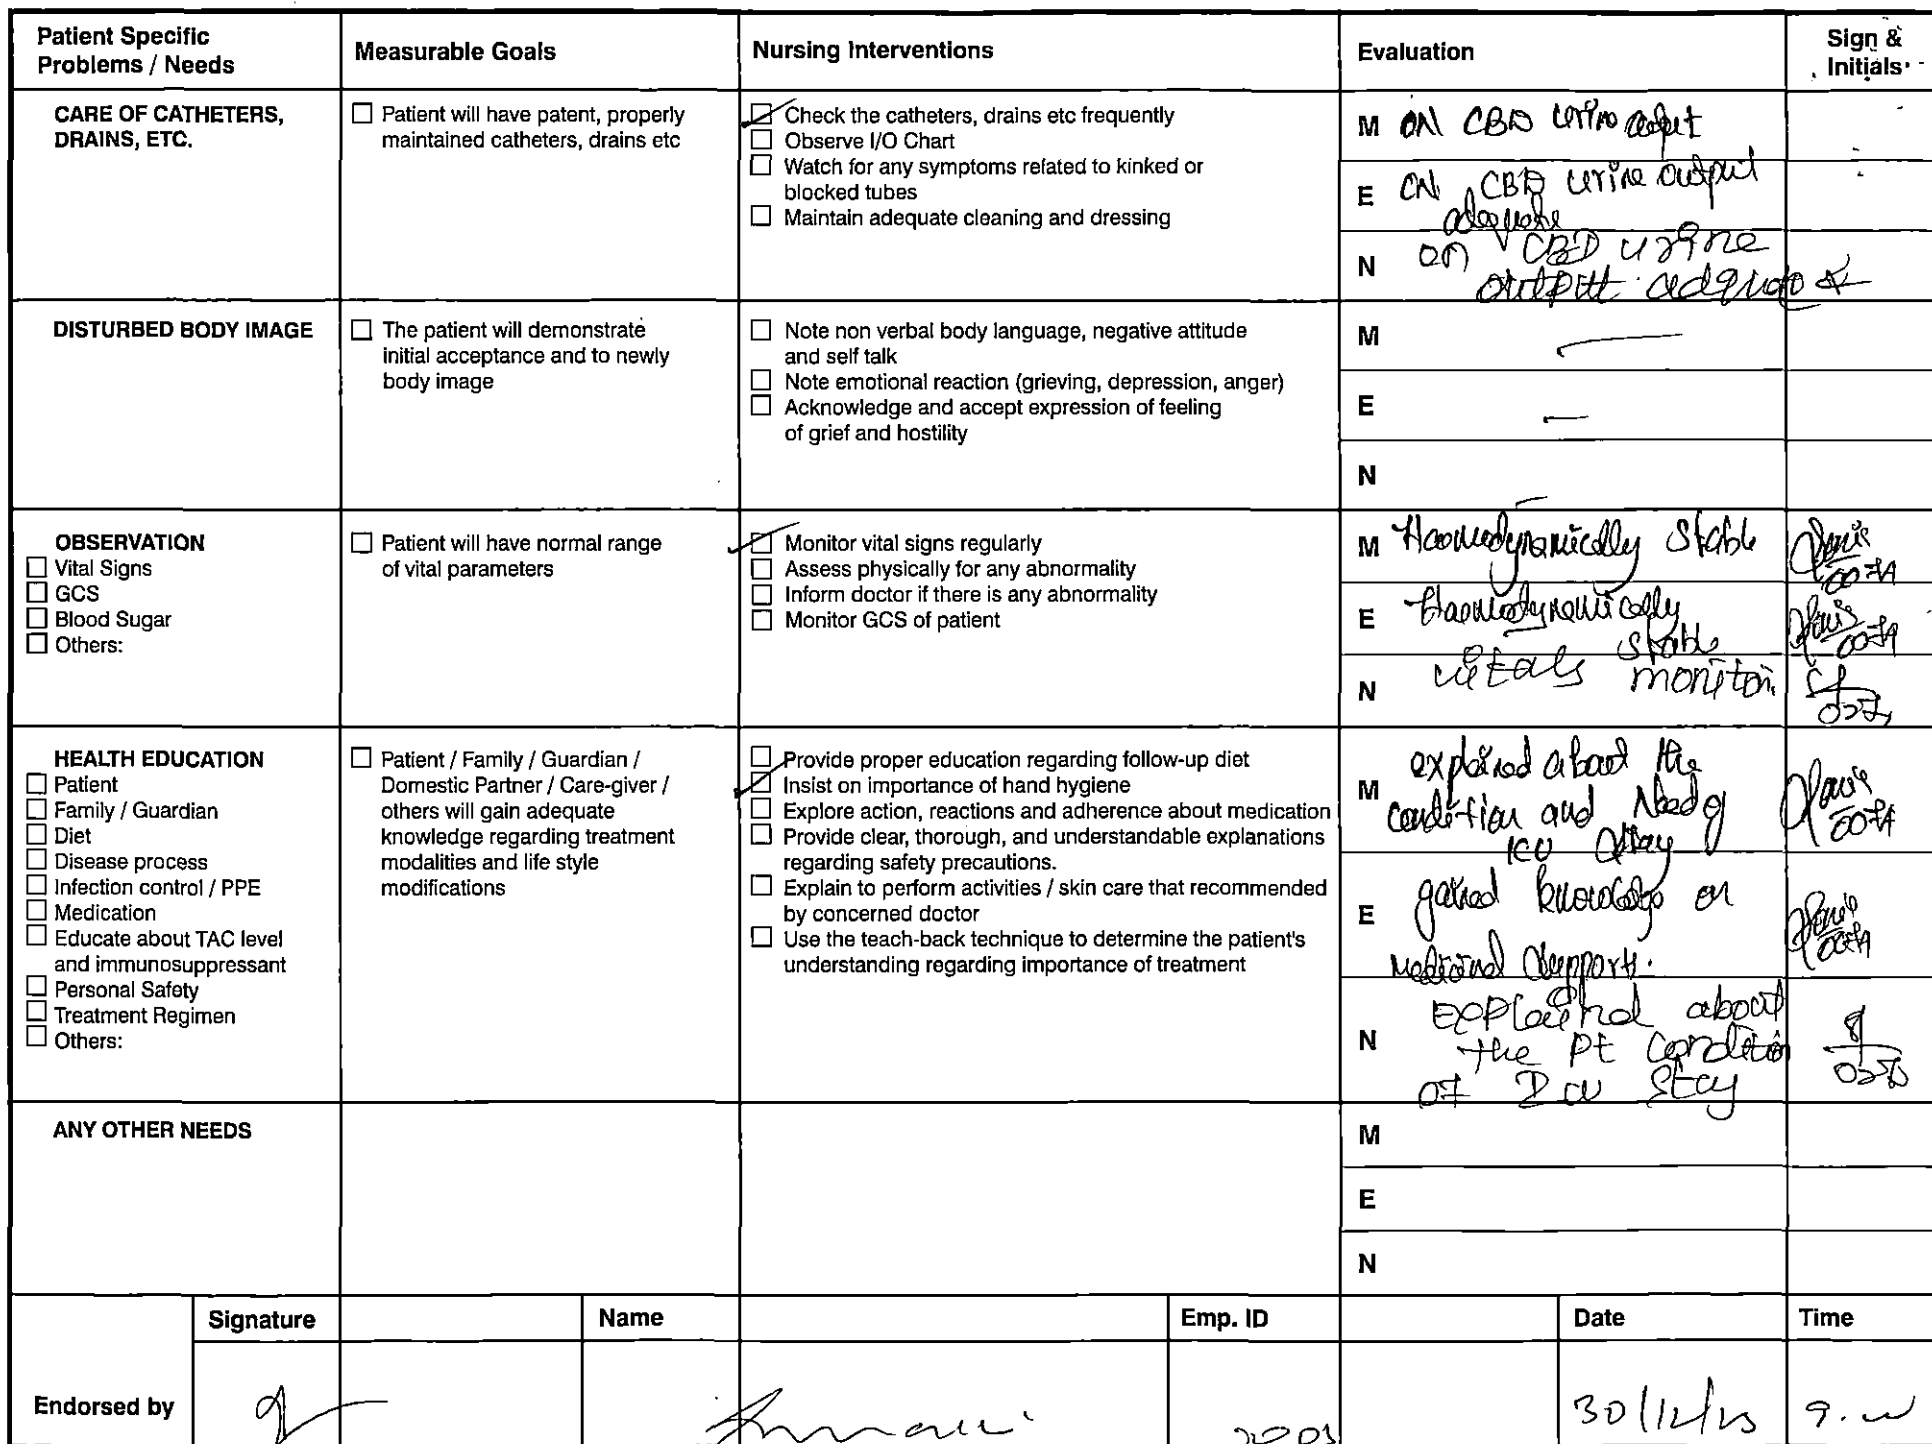 Patient Specific Problems / Needs
Measurable Goals
Nursing Interventions
Evaluation
Sign & Initials
CARE OF CATHETERS,
DRAINS, ETC.
☐ Patient will have patent, properly
maintained catheters, drains etc
☑ Check the catheters, drains etc frequently
☐ Observe I/O Chart
☐ Watch for any symptoms related to kinked or
blocked tubes
☐ Maintain adequate cleaning and dressing
M ON CBD urine
E ON CBD urine output
adequate
N on CBD urine
output
DISTURBED BODY IMAGE
☐ The patient will demonstrate
initial acceptance and to newly
body image
☐ Note non verbal body language, negative attitude
and self talk
☐ Note emotional reaction (grieving, depression, anger)
☐ Acknowledge and accept expression of feeling
of grief and hostility
M —
E —
N
OBSERVATION
☐ Vital Signs
☐ GCS
☐ Blood Sugar
☐ Others:
☐ Patient will have normal range
of vital parameters
☑ Monitor vital signs regularly
☐ Assess physically for any abnormality
☐ Inform doctor if there is any abnormality
☐ Monitor GCS of patient
M Haemodynamically Stable
E Haemodynamically
Stable
N vitals monitor
HEALTH EDUCATION
☐ Patient
☐ Family / Guardian
☐ Diet
☐ Disease process
☐ Infection control / PPE
☐ Medication
☐ Educate about TAC level
and immunosuppressant
☐ Personal Safety
☐ Treatment Regimen
☐ Others:
☐ Patient / Family / Guardian /
Domestic Partner / Care-giver /
others will gain adequate
knowledge regarding treatment
modalities and life style
modifications
☐ Provide proper education regarding follow-up diet
☑ Insist on importance of hand hygiene
☐ Explore action, reactions and adherence about medication
☐ Provide clear, thorough, and understandable explanations
regarding safety precautions.
☐ Explain to perform activities / skin care that recommended
by concerned doctor
☐ Use the teach-back technique to determine the patient's
understanding regarding importance of treatment
M explained about the
condition and Need of
ICU stay
E gained knowledge on
support.
N about
the pt condition
of Icu stay
ANY OTHER NEEDS
M
E
N
Signature
Name
Emp. ID
Date
Time
Endorsed by
30/12/23